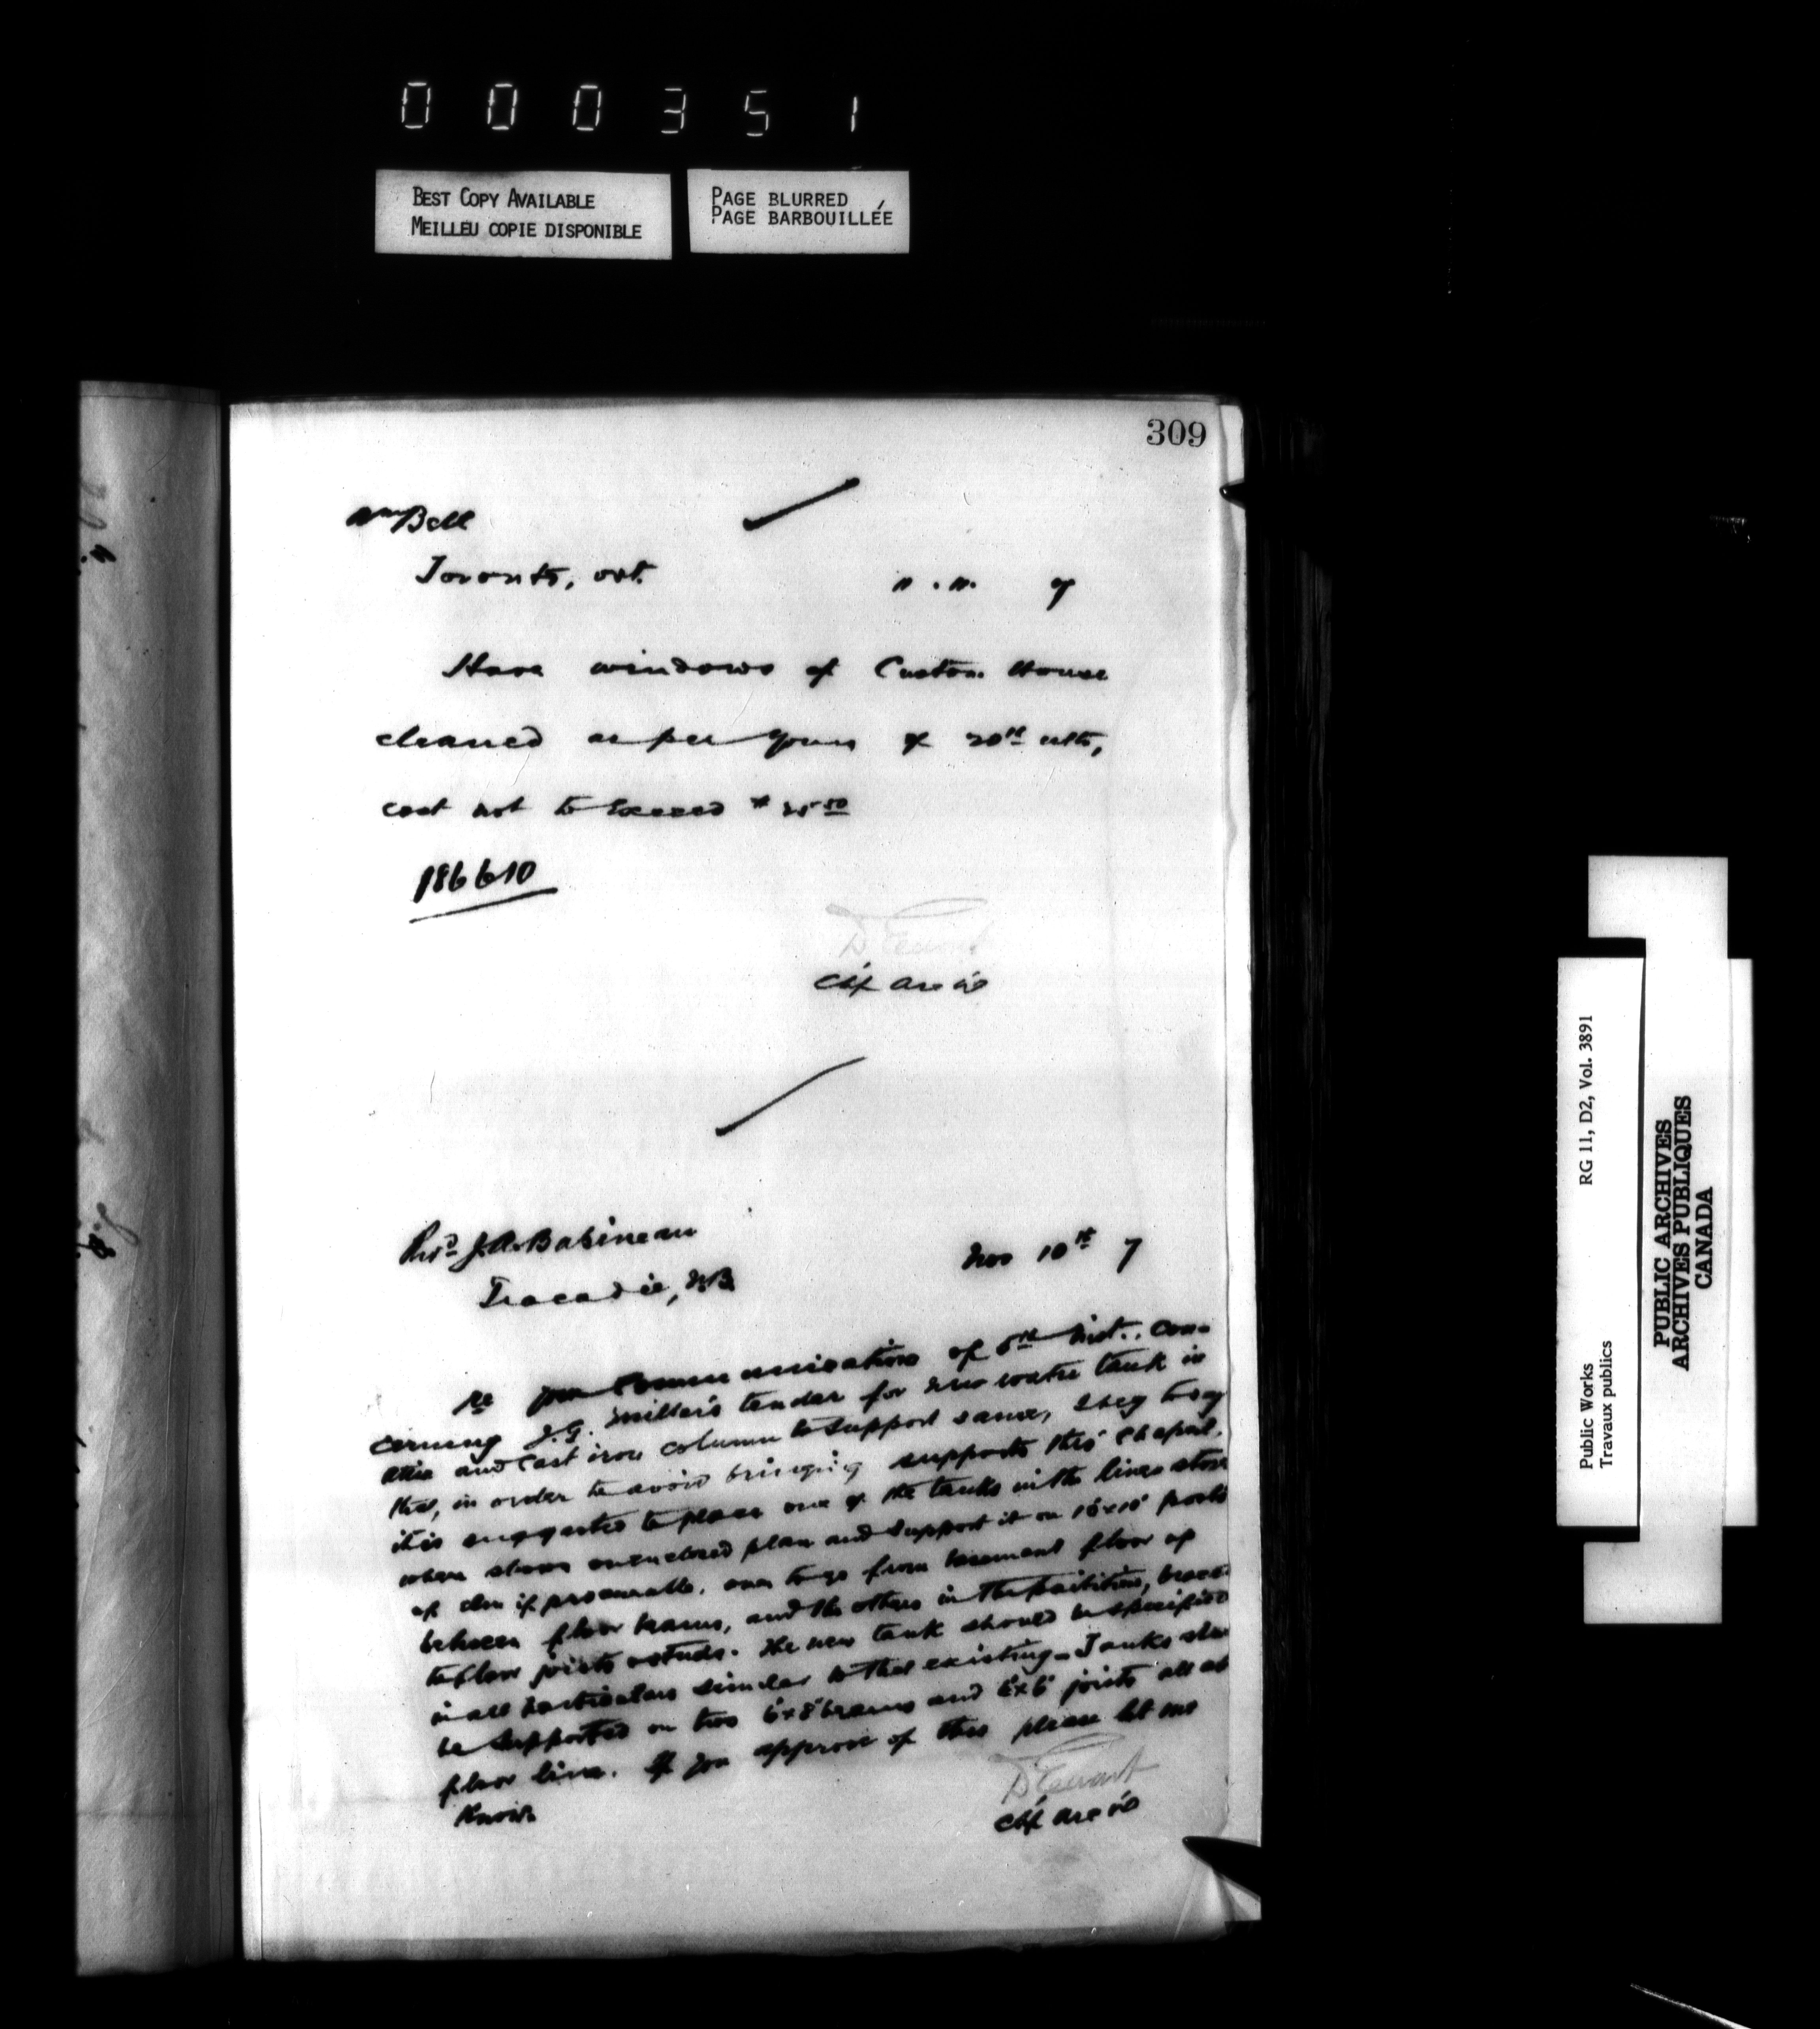 000351
BEST COPY AVAILABLE
MEILLEU COPIE DISPONIBLE
PAGE BLURRED
PAGE BARBOUILLÉE
309
Wm Bell
Toronto, Ont.
" . ". 7
Have windows of Custom House
cleaned as per yours of 20th ulto,
cost not to exceed $
186610
D Ewart
Chf Arc
Revd J.A. Babineau
Tracadie, N.B.
Nov 10th 7
Re your communication of 5th inst., con-
cerning J.G. Miller's tender for new water tank in
attic and cast iron column to support same, I beg to say
that, in order to avoid bringing supports thro' Chapel,
it is suggested to place one of the tanks in the linen
where shown on enclosed plan and support it on 10"x10" posts
of elm if procurable, one to go from basement floor up
between floor beams, and the others in the partition,
to floor joists & studs. The new tank should be specified
in all particulars similar to that existing - Tanks
be supported on two 6"x8" beams and 6"x6" joists all
floor line. If you approve of this please let me
know.
D Ewart
Chf Arc
Public Works RG 11, D2, Vol. 3891
Travaux publics
PUBLIC ARCHIVES
ARCHIVES PUBLIQUES
CANADA